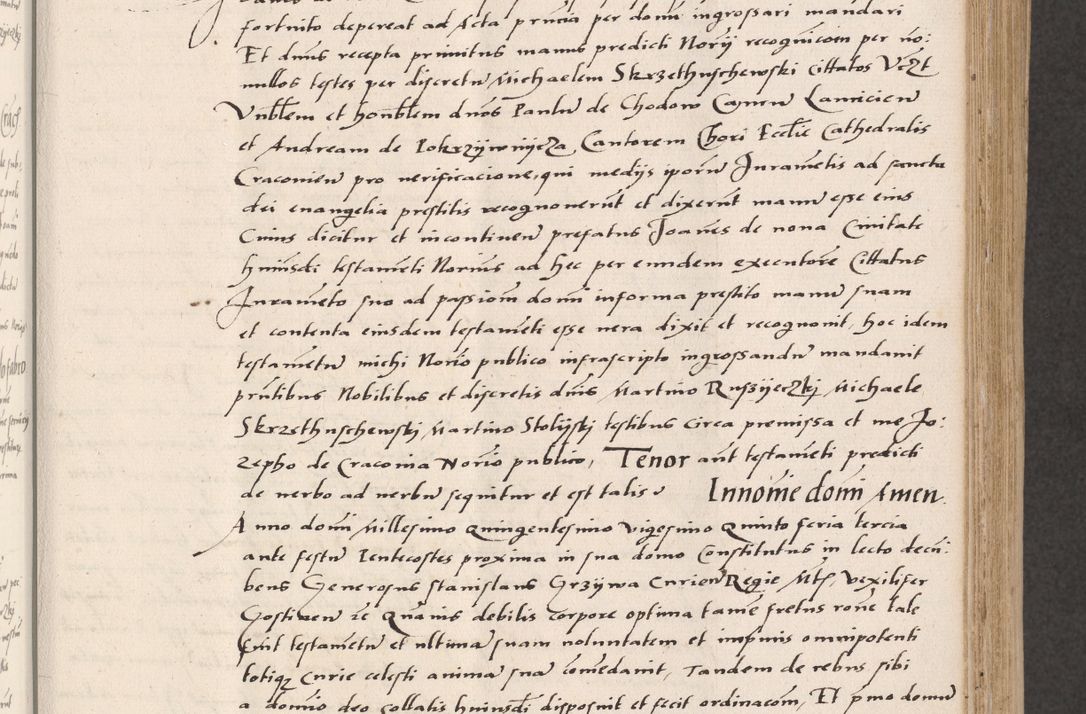 fortuito depereat ad Acta prñcia per domĩ ingrossari mandari
Et dm̃s recepta primitus manus predicti Norij recogn̄icoem per no:
nullos testes per discretũ Michaelem Skrzethuschewski Cittatos Vczt
Vnb̃lem et honb̃lem dnõs Paulũ de Chodow Canoñ Lanicieñ
et Andream de Pokrzijwnijcza Cantorem Chori Eccl̃ie Cathedralis
Cracovieñ pro verificacione, qui medijs ip̃orũ Juramẽtis ad sancta
dei evangelia prestitis recognoverũt et dixerũt manũ esse eius
Cuius dicitur et incontineñ prefatus Joañes de nova Civitate
huiusd̃i testamẽti Norius ad hec per eundem executorẽ Cittatus
Juramẽto suo ad passionẽ domĩ in forma prestito manũ suam
et contenta eiusdem testamẽti esse vera dixit et recognovit, hoc idem
testamẽtũ michi Norio publico infrascripto ingrossandũ mandavit
prñtibus Nobilibus et discretis dñis Martino Ruszijeczkj Michaele
Skrzethuschewskj Martino Stolijskj testibus circa premissa et me Jo:
zepho de Cracovia Norio publico, Tenor aũt testamẽti predicti
de verbo ad verbũ sequitur et est talis, Innoĩe domĩ Amen.
Anno domĩ Millesimo quingentesimo vigesimo quinto feria tercia
ante festũ Pentecostes proxima in sua domo Constitutus in lecto decũ:
bens Generosus Stanislaus Grzijwa Curieñ Regie Mtĩs, vexilifer
Gostineñ ẽc Quãvis debilis corpore optima tamẽ fretus rõne tale
fecit testamẽtũ et ultimã suam voluntatem et inprimis omnipotenti
totiq; Curie celesti animã suã comẽdavit, Tandem de rebus sibi
a domino deo collatis huiusd̃i disposuit et fecit ordinacoẽm, Et prĩo domũ